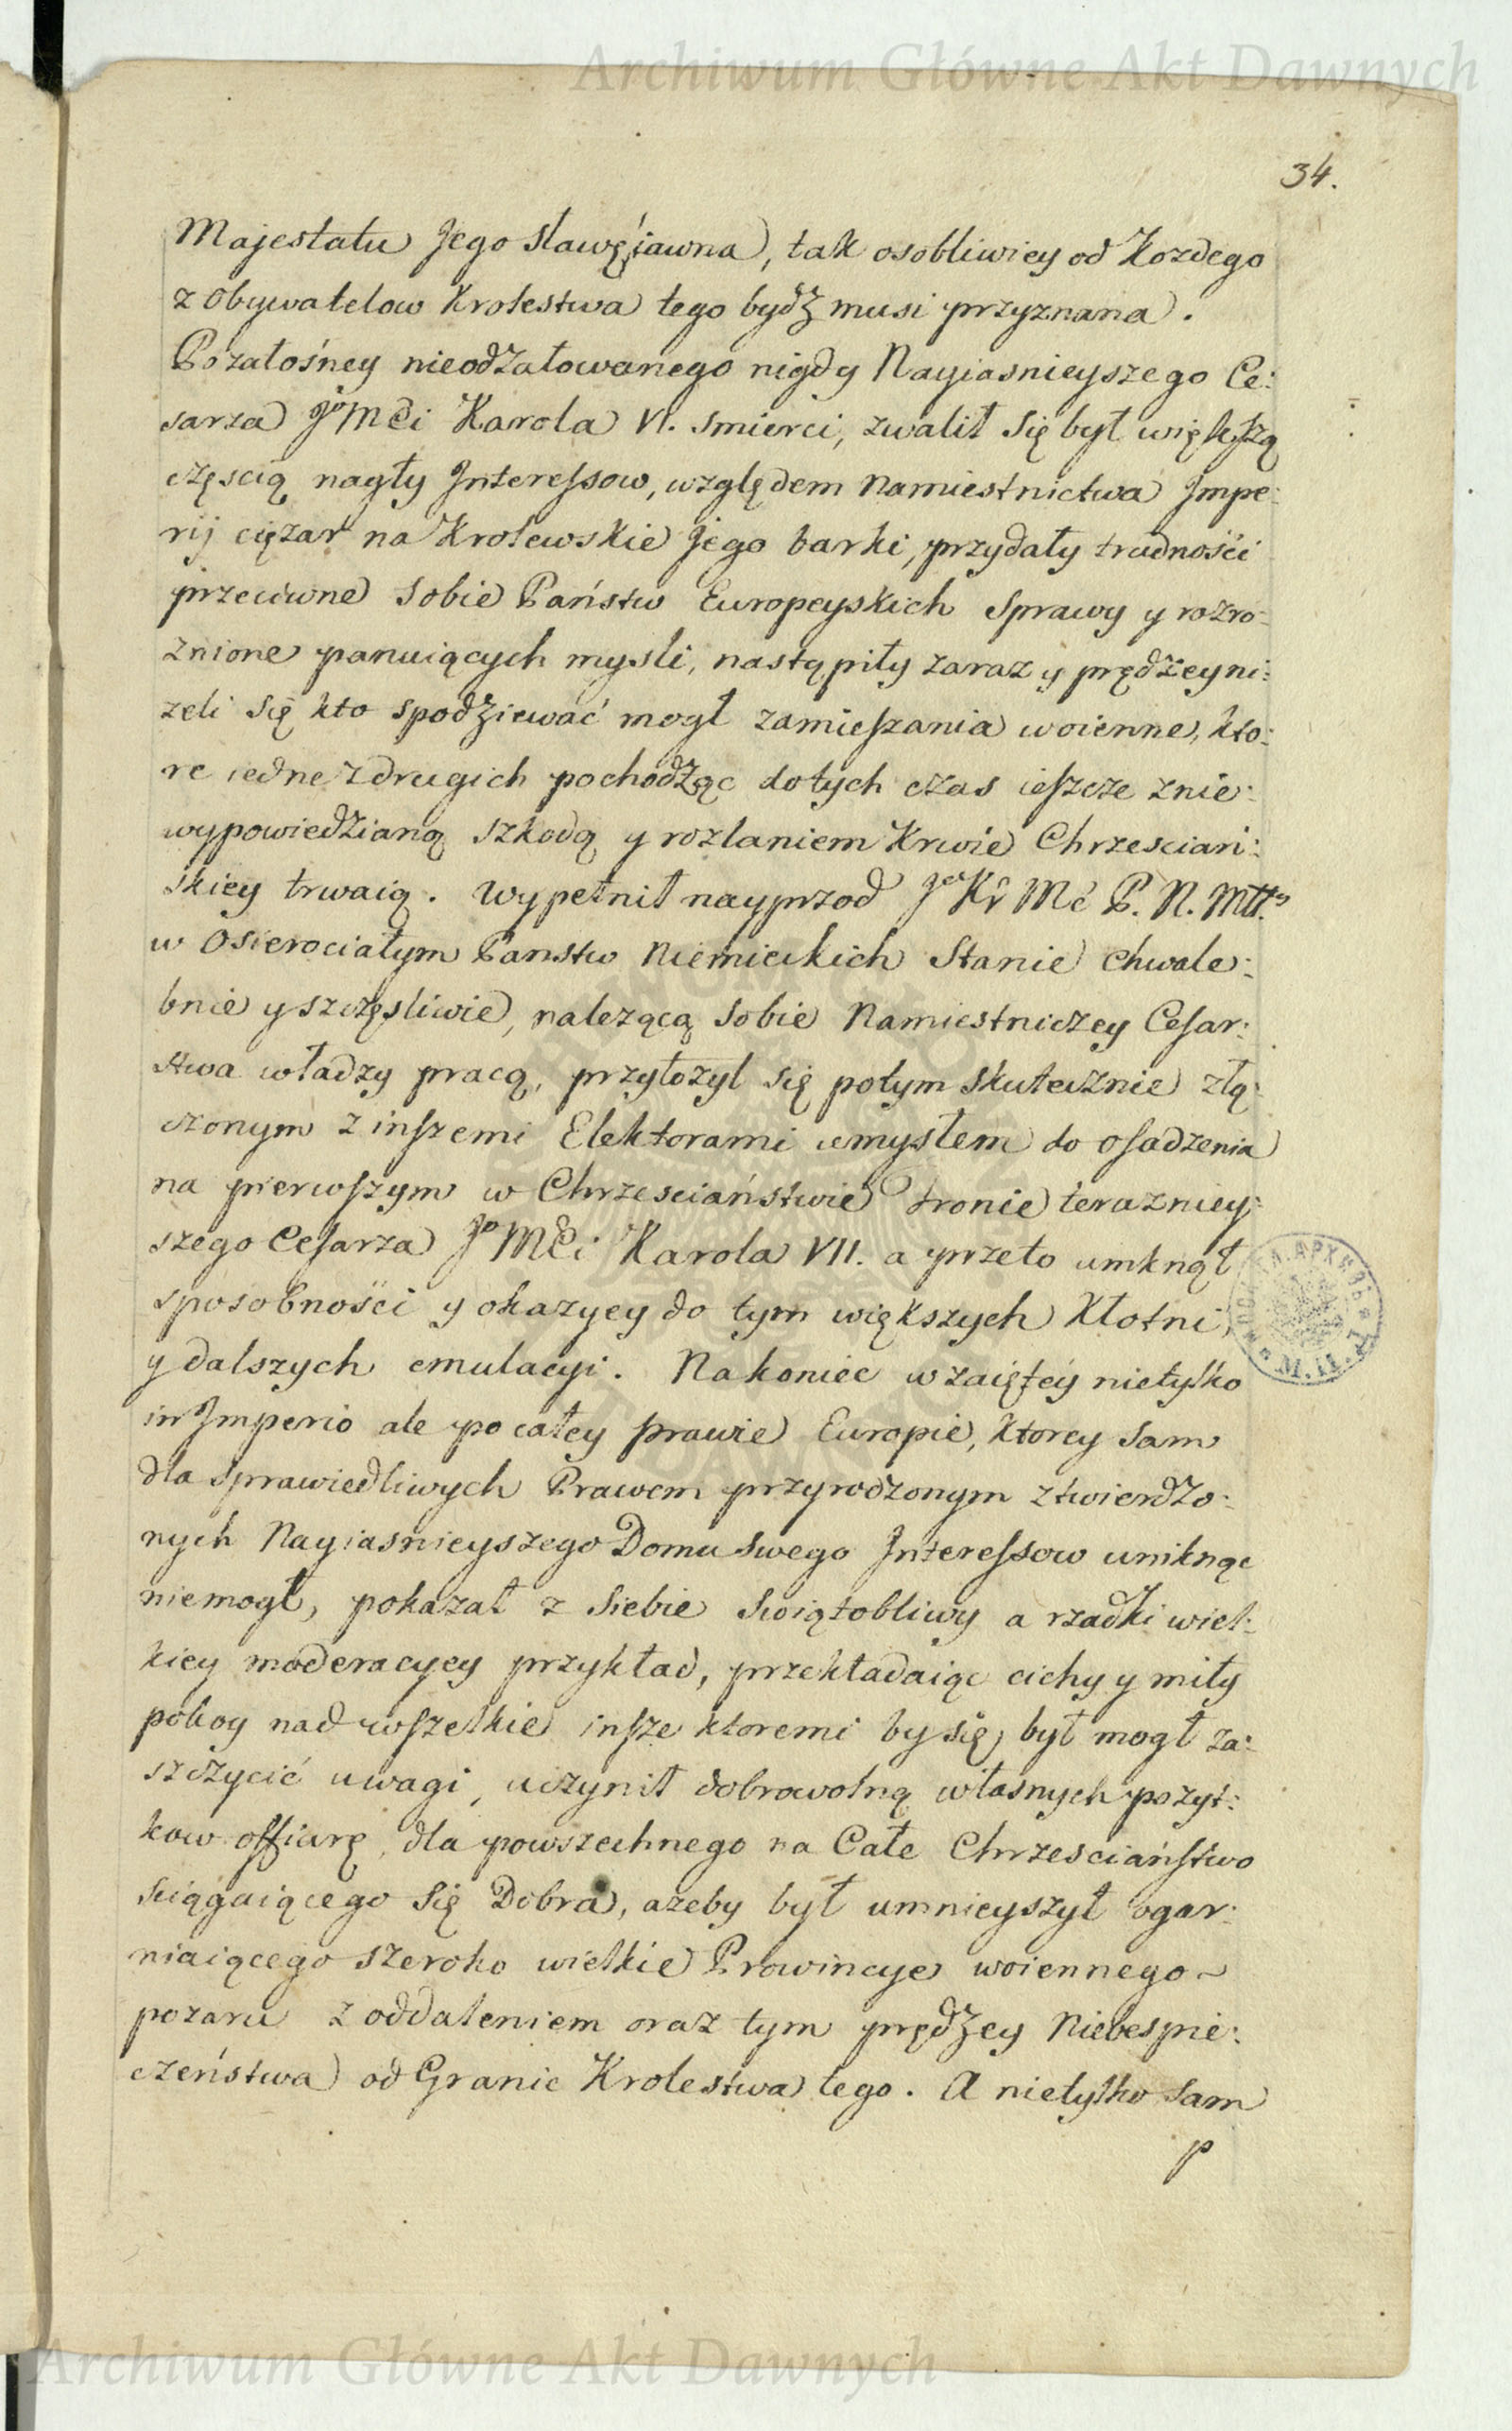 Archiwum Główne Akt Dawnych
34.
Majestatu Jego sławę jawna, tak osobliwiey od Kozdego
z Obywatelow Krolestwa tego bydz musi przyznana.
Po załośney nieodzałowanego nigdy Nayiasnieyszego Ce:
sarza JoMci Karola VI. smierci, zwalił się był większą
częscią nagły Interessow, względem Namiestnictwa Impe:
rij cięzar na Krolewskie Jego barki, przydały trudności
przeciwne sobie Państw Europeyskich sprawy y rozro:
znione panuiących mysli, nastąpiły zaraz y prędzey ni:
zeli się kto spodziewać mogł zamieszania woienne, kto:
re iedne z drugich pochodząc do tych czas ieszcze z nie:
wypowiedzianą szkodą y rozlaniem Krwie Chrzescian:
skiey trwaią. Wypełnił nayprzod JoKr Mć P. N. Mtt.
w Osierociałym Panstw Niemieckich Stanie chwale:
bnie y szczęsliwie, nalezącą sobie Namiestniczey Cesar:
stwa władzy pracą, przyłozyl się potym skutecznie złą:
czonym z inszemi Elektorami umysłem do osadzenia
na pierwszym w Chrzesciaństwie tronie terazniey:
szego Cesarza JoMci Karola VII. a przeto umknął
sposobności y okazyey do tym większych Kłotni,
y dalszych emulacyi. Nakoniec wzaiętey nietylko
in Imperio ale po całey prawie Europie, Ktorey sam
dla sprawiedliwych Prawem przyrodzonym ztwierdzo:
nych Nayiasnieyszego Domu swego Interessow uniknąc
niemogł, pokazał z siebie swiątobliwy a rzadki wiel:
kiey moderacyey przykład, przekładaiąc cichy y miły
pokoy nad wszelkie insze ktoremi by się był mogł za:
szczycić uwagi, uczynił dobrowolną własnych pozyt:
kow offiarę, dla powszechnego na Całe Chrzesciaństwo
sciągaiącego się Dobra, azeby był umnieyszył ogar:
niaiącego szeroko wielkie Prowincye woiennego
pozaru z oddaleniem oraz tym prędzey Niebespie:
czeństwa od Granic Krolestwa tego. A nietylko sam
p
Archiwum Główne Akt Dawnych